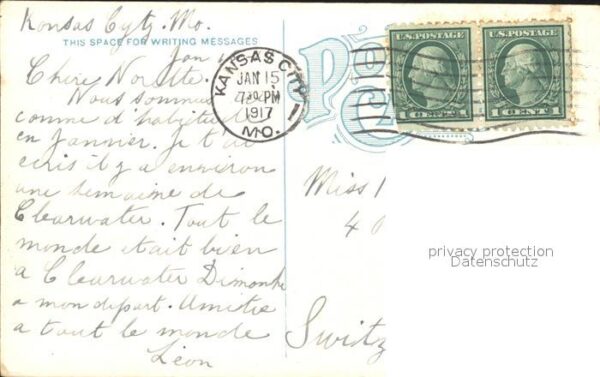 Kansas Cyty. Mo.
THIS SPACE FOR WRITING MESSAGES
Jan
Chère Norette.
Nous sommes
comme d'habitude
en Janvier. Je t'ai
ecris il y a environ
une semaine de
Clearwater. Tout le
monde était bien
a Clearwater Dimanche
a mon depart. Amitié
a tout le monde
Léon
KANSAS CITY
JAN 15
7 30 PM
1917
MO.
1
U.S. POSTAGE
1 CENT 1
U.S. POSTAGE
1 CENT 1
PO
C
Miss
40
Switz
privacy protection
Datenschutz